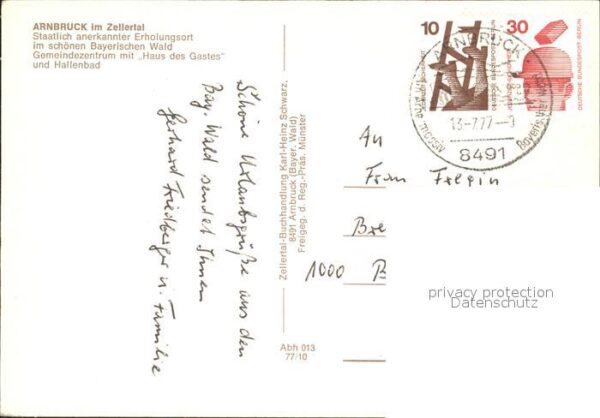 ARNBRUCK im Zellertal
Staatlich anerkannter Erholungsort
im schönen Bayerischen Wald
Gemeindezentrum mit „Haus des Gastes"
und Hallenbad
Schöne Urlaubsgrüße aus dem
Bay. Wald sendet Ihnen
Gerhard Friedberger u. Familie
Zellertal-Buchhandlung Karl-Heinz Schwarz,
8491 Arnbruck (Bayer. Wald)
Freigeg. d. Reg.-Präs. Münster
Abh 013
77/10
10
30
DEUTSCHE BUNDESPOST BERLIN
ARNBRUCK
13-7.77-9
8491
An
Frau
Bre
1000 B
privacy protection
Datenschutz